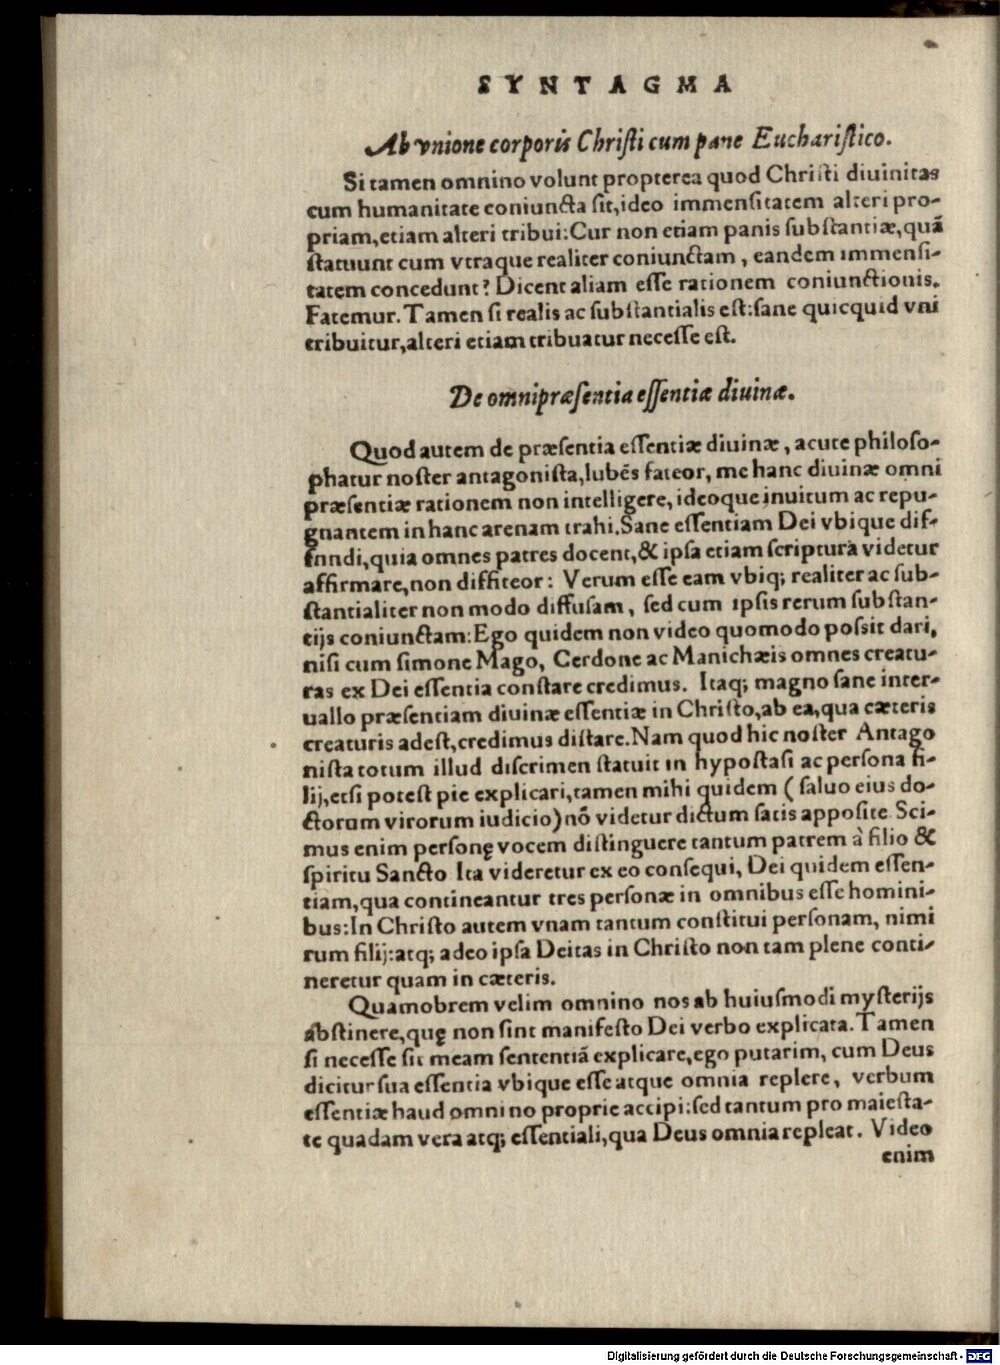 SYNTAGMA
Ab vnione corporis Christi cum pane Eucharistico.
Si tamen omnino volunt propterea quod Christi diuinitas
cum humanitate coniuncta sit, ideo immensitatem alteri pro-
priam, etiam alteri tribui: Cur non etiam panis substantiæ, quā
statuunt cum vtraque realiter coniunctam, eandem immensi-
tatem concedunt? Dicent aliam esse rationem coniunctionis.
Fatemur. Tamen si realis ac substantialis est: sane quicquid vni
tribuitur, alteri etiam tribuatur necesse est.
De omnipræsentia essentiæ diuinæ.
Quod autem de præsentia essentiæ diuinæ, acute philoso-
phatur noster antagonista, lubēs fateor, me hanc diuinæ omni
præsentiæ rationem non intelligere, ideoque inuitum ac repu-
gnantem in hanc arenam trahi. Sane essentiam Dei vbique dif-
fnndi, quia omnes patres docent, & ipsa etiam scriptura videtur
affirmare, non diffiteor: Verum esse eam vbiq; realiter ac sub-
stantialiter non modo diffusam, sed cum ipsis rerum substan-
tijs coniunctam: Ego quidem non video quomodo possit dari,
nisi cum simone Mago, Cerdone ac Manichæis omnes creatu-
ras ex Dei essentia constare credimus. Itaq; magno sane inter-
uallo præsentiam diuinæ essentiæ in Christo, ab ea, qua cæteris
creaturis adest, credimus distare. Nam quod hic noster Antago
nista totum illud discrimen statuit in hypostasi ac persona fi-
lij, etsi potest pie explicari, tamen mihi quidem (saluo eius do-
ctorum virorum iudicio) nō videtur dictum satis apposite. Sci-
mus enim personę vocem distinguere tantum patrem à filio &
spiritu Sancto Ita videretur ex eo consequi, Dei quidem essen-
tiam, qua contineantur tres personæ in omnibus esse homini-
bus: In Christo autem vnam tantum constitui personam, nimi
rum filij: atq; adeo ipsa Deitas in Christo non tam plene conti-
neretur quam in cæteris.
Quamobrem velim omnino nos ab huiusmodi mysterijs
abstinere, quę non sint manifesto Dei verbo explicata. Tamen
si necesse sit meam sententiā explicare, ego putarim, cum Deus
dicitur sua essentia vbique esse atque omnia replere, verbum
essentiæ haud omnino proprie accipi: sed tantum pro maiesta-
te quadam vera atq; essentiali, qua Deus omnia repleat. Video
enim
Digitalisierung gefördert durch die Deutsche Forschungsgemeinschaft - DFG